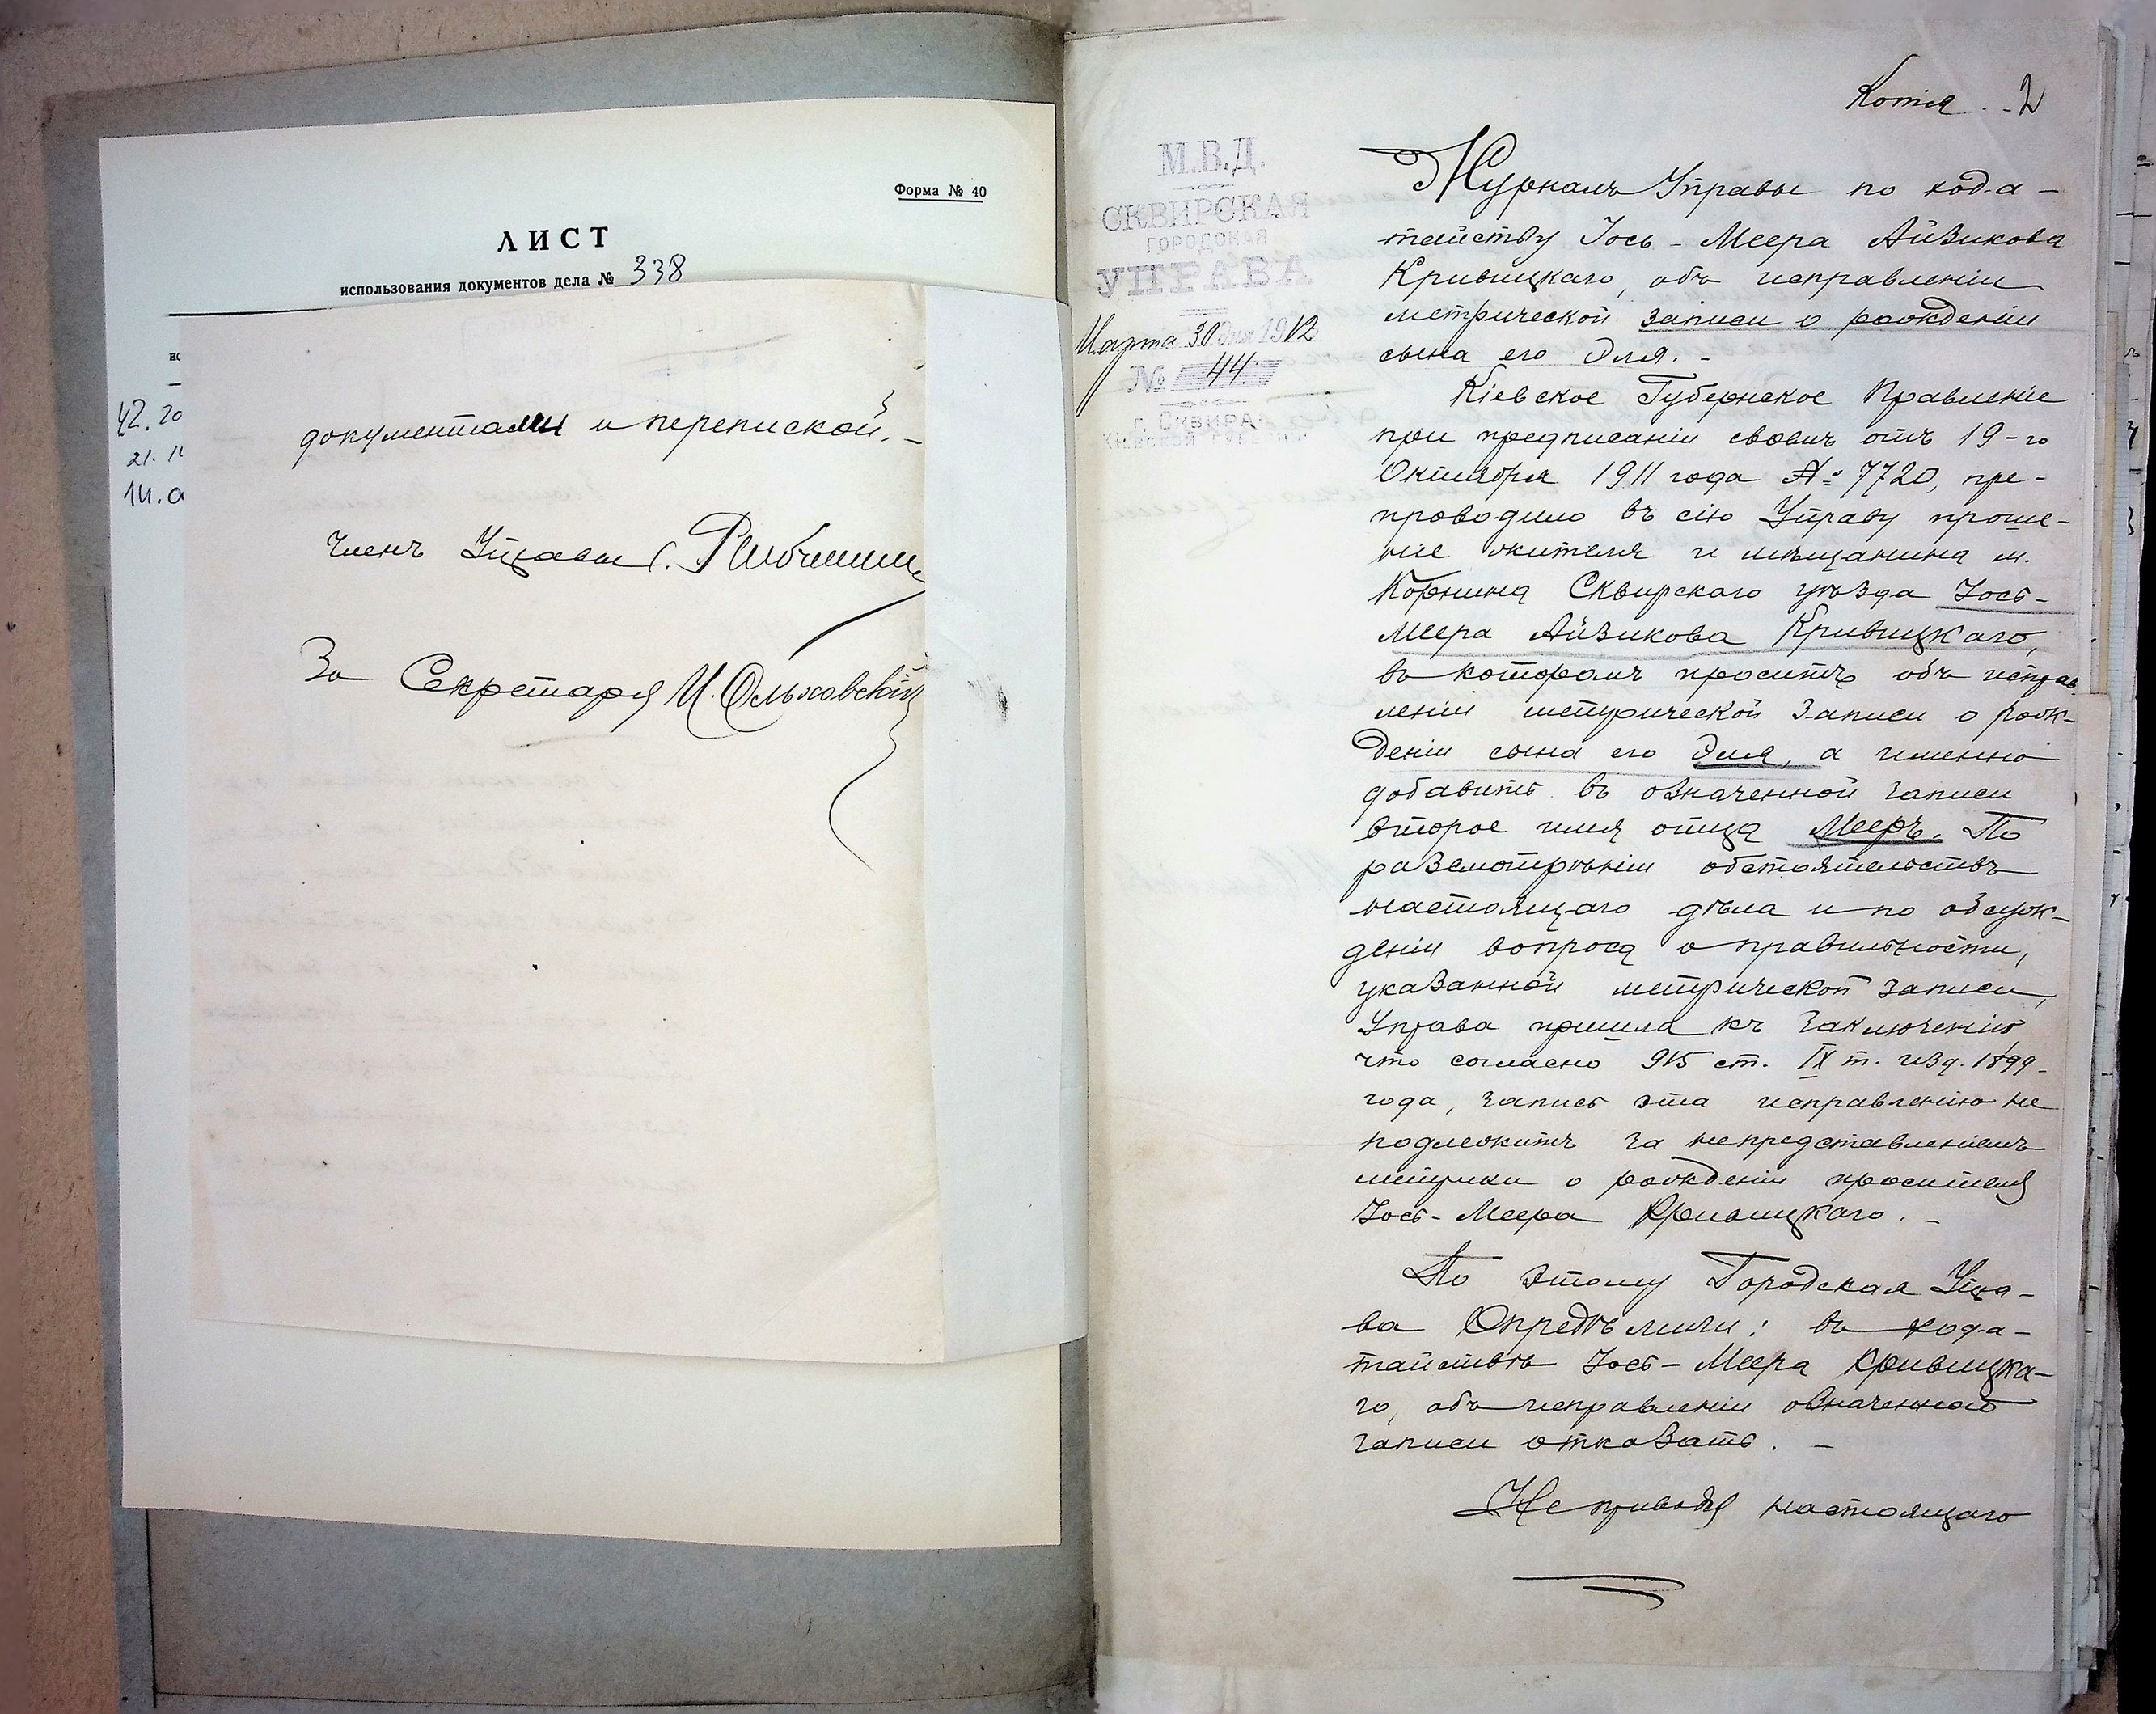 Форма № 40
ЛИСТ
использования документов дела № 338
42.20
21.
14.а
документами и перепиской.-
Членъ Управы
За Секретаря И. Ольховскій
Копія. 2
М.В.Д.
СКВИРСКАЯ
ГОРОДСКАЯ
УПРАВА
Марта 30 дня 1912
№ 44
г. СКВИРА-
КІЕВСКОЙ ГУБЕРНІИ
Журналъ Управы по хода-
тайству Іось-Меера Айзикова
Кривицкаго, объ исправленіи
метрической записи о рожденіи
сына его Эля.-
Кіевское Губернское Правленіе
при предписаніи своемъ отъ 19-го
Октября 1911 года № 7720, пре-
проводило въ сію Управу проше-
ніе жителя и мѣщанина м.
Корнина Сквирскаго уѣзда Іось-
Меера Айзикова Кривицкаго,
въ которомъ проситъ объ исправ
леніи метрической записи о рож-
деніи сына его Эля, а именно
добавить въ означенной записи
второе имя отца Мееръ. По
разсмотрѣніи обстоятельствъ
настоящаго дѣла и по обсуж-
деніи вопроса о правильности,
указанной метрической записи,
Управа пришла къ заключенію
что согласно 915 ст. IX т. изд. 1899
года, запись эта исправленію не
подлежитъ за непредставленіемъ
метрики о рожденіи просителя
Іось-Меера Кривицкаго.-
По этому Городская Упра-
ва Опредѣлили: въ хода-
тайствѣ Іось-Меера Кривицка-
го, объ исправленіи означенной
записи отказать.-
Не приводя настоящаго